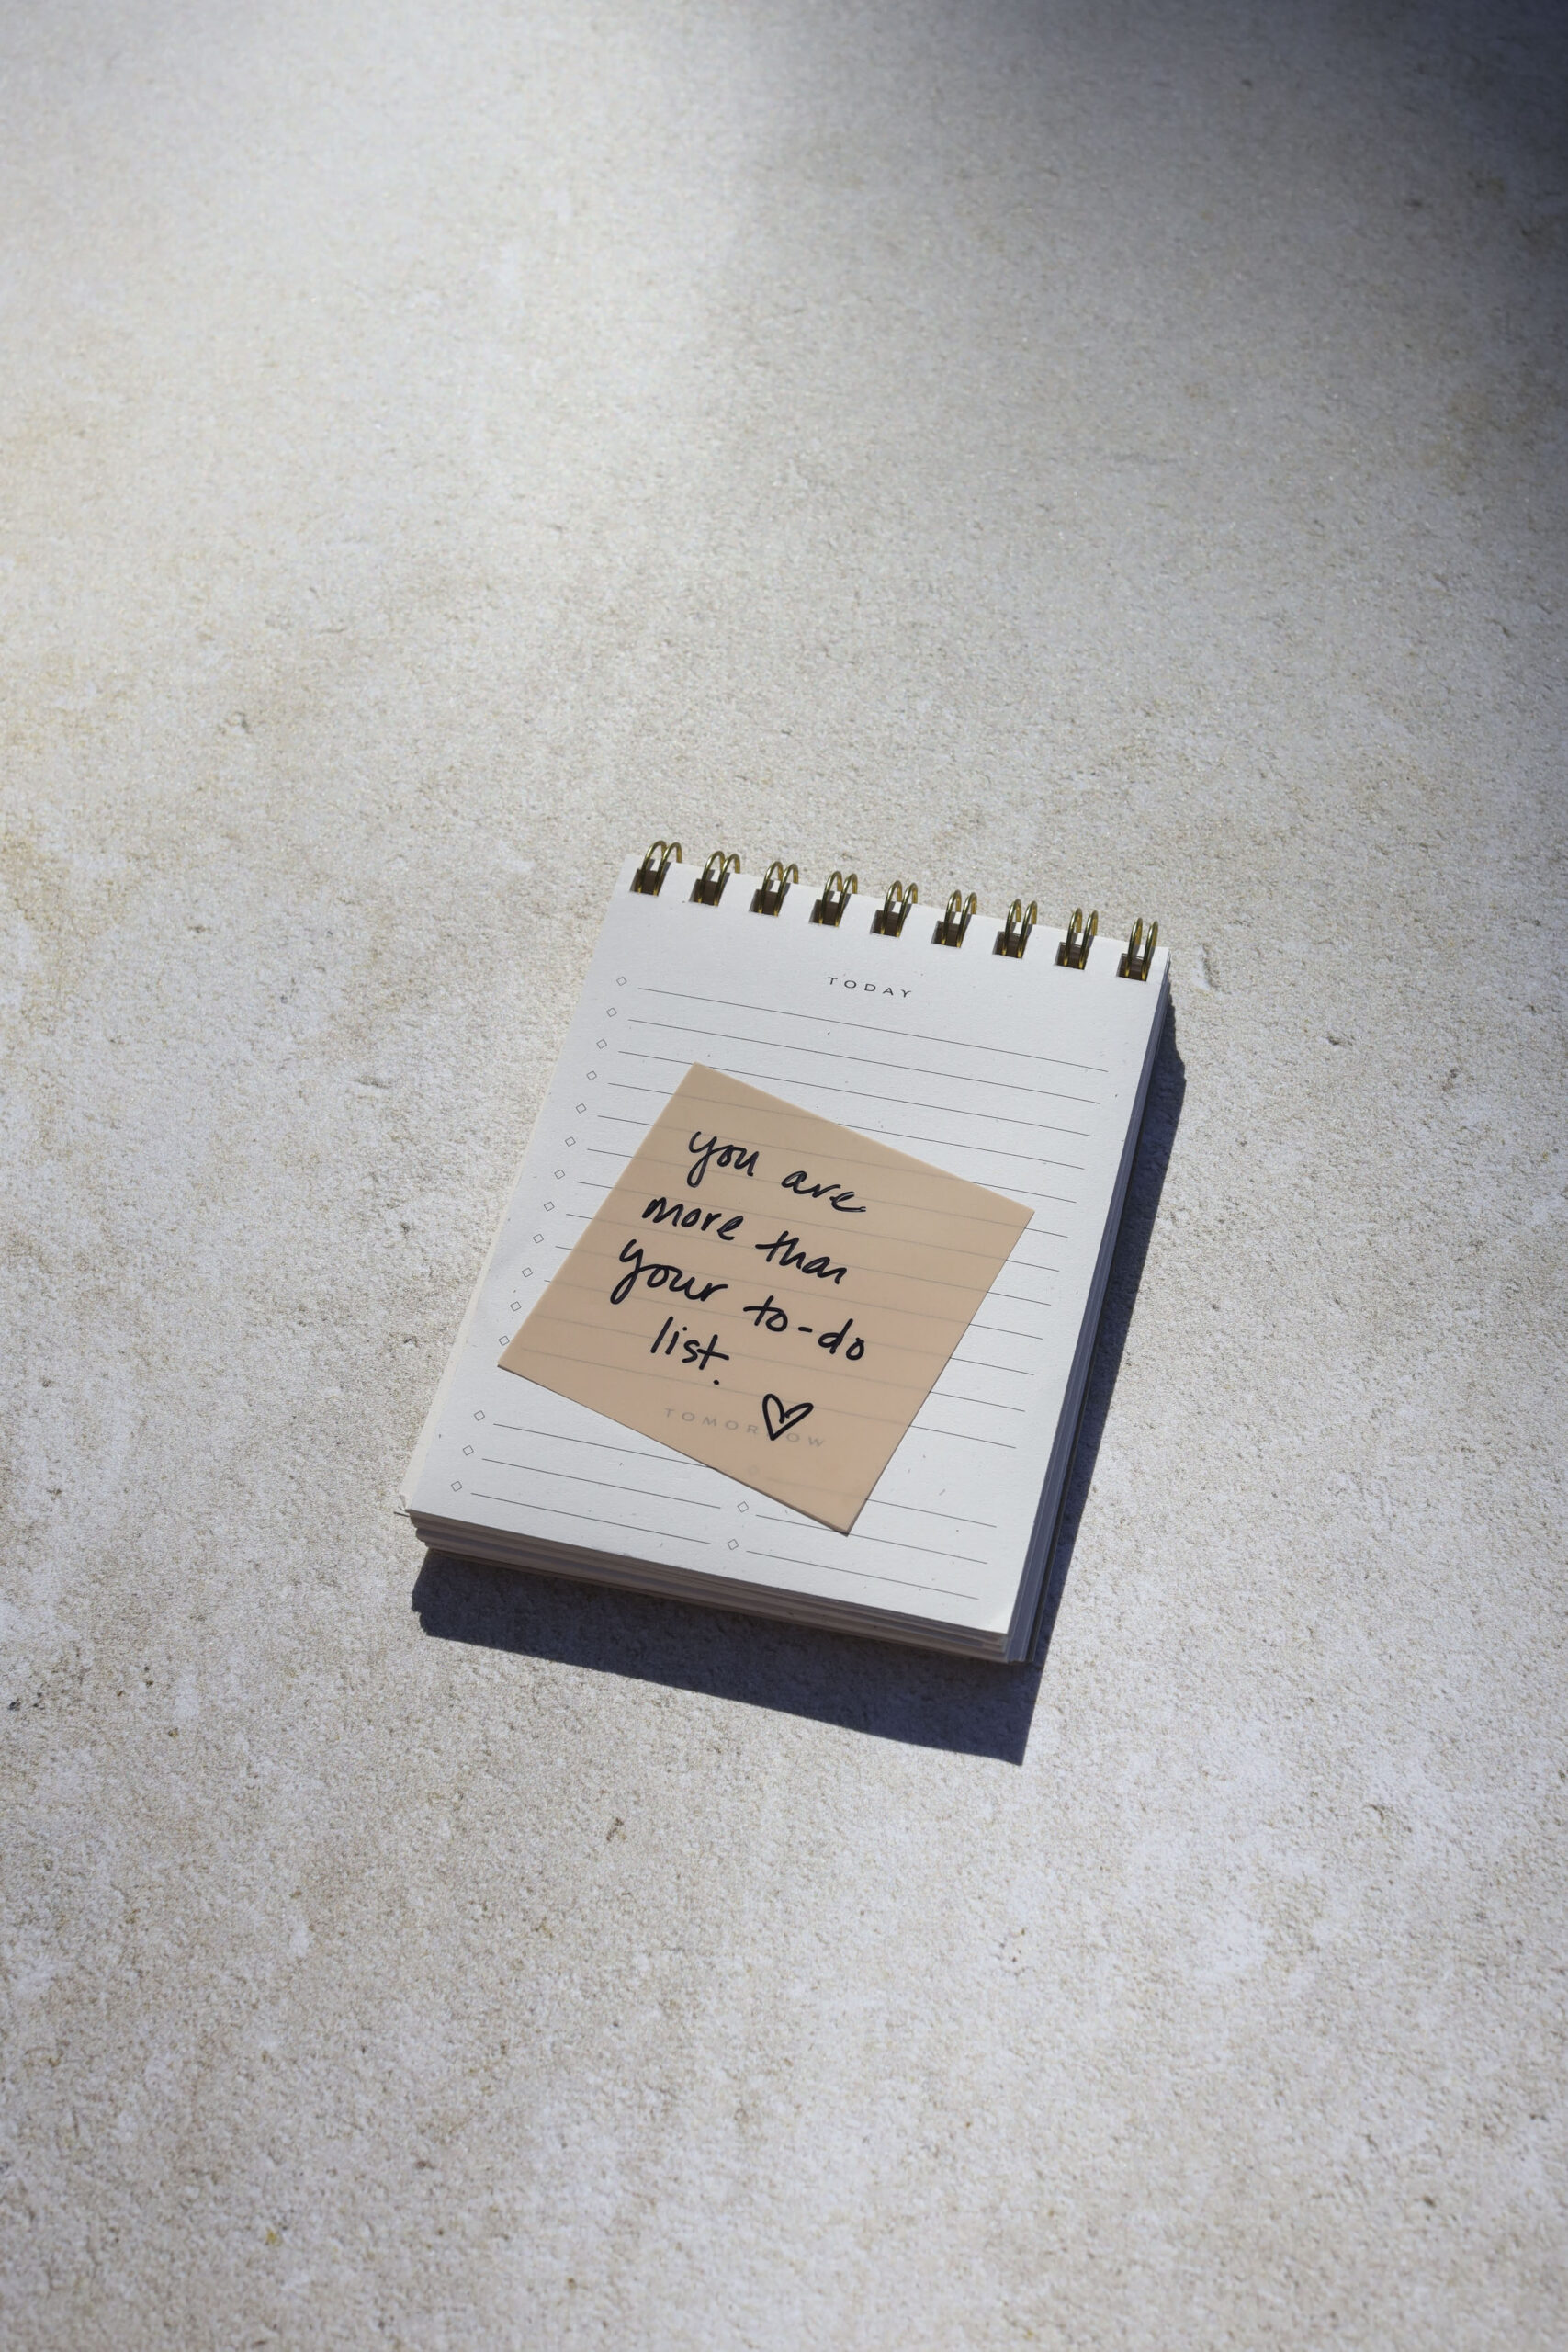 TODAY
you are
more than
your to-do
list.
TOMORROW